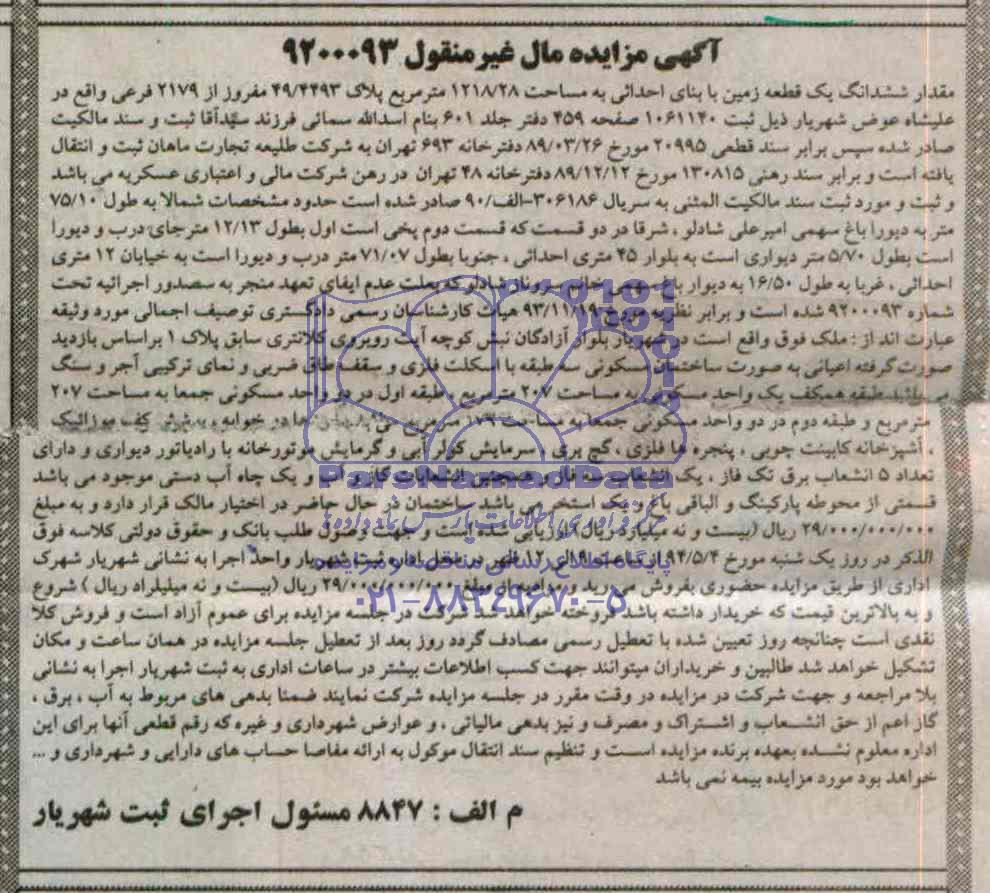 آگهی مزایده مال غیر منقول ۹۲۰۰۰۹۳
مقدار ششدانگ یک قطعه زمین با بنای احداثی به مساحت ۱۲۱۸/۲۸ مترمربع پلاک ۴۹/۴۴۹۳ مفروز از ۲۱۷۹ فرعی واقع در
علیشاه عوض شهریار ذیل ثبت ۱۰۶۱۱۴۰ صفحه ۴۵۹ دفتر جلد ۶۰۱ بنام اسدالله سمائی فرزند سیدآقا ثبت و سند مالکیت
صادر شده سپس برابر سند قطعی ۲۰۹۹۵ مورخ ۸۹/۰۳/۲۶ دفترخانه ۶۹۳ تهران به شرکت طلیعه تجارت ماهان ثبت و انتقال
یافته است و برابر سند رهنی ۱۳۰۸۱۵ مورخ ۸۹/۱۲/۱۲ دفترخانه ۴۸ تهران در رهن شرکت مالی و اعتباری عسکریه می باشد
و ثبت و مورد ثبت سند مالکیت المثنی به سریال ۳۰۶۱۸۶-الف/۹۰ صادر شده است حدود مشخصات شمالا به طول ۷۵/۱۰
متر به دیورا باغ سهمی امیرعلی شادلو ، شرقا در دو قسمت که قسمت دوم پخی است اول بطول ۱۲/۱۳ مترجای درب و دیورا
است بطول ۵/۷۰ متر دیواری است به بلوار ۴۵ متری احداثی ، جنوبا بطول ۷۱/۰۷ متر درب و دیورا است به خیابان ۱۲ متری
احداثی ، غربا به طول ۱۶/۵۰ به دیوار باغ سهمی خانم شادلو که بعلت عدم ایفای تعهد منجر به صدور اجرائیه تحت
شماره ۹۲۰۰۰۹۳ شده است و برابر نظریه مورخ ۹۳/۱۱/۱۹ هیات کارشناسان رسمی دادگستری توصیف اجمالی مورد وثیقه
عبارت اند از : ملک فوق واقع است در شهریار بلوار آزادگان نبش کوچه آیت روبروی کلانتری سابق پلاک ۱ براساس بازدید
صورت گرفته اعیانی به صورت ساختمان مسکونی سه طبقه با اسکلت فلزی و سقف طاق ضربی و نمای ترکیبی آجر و سنگ
می باشد طبقه همکف یک واحد مسکونی به مساحت ۲۰۷ مترمربع ، طبقه اول در دو واحد مسکونی جمعا به مساحت ۲۰۷
مترمربع و طبقه دوم در دو واحد مسکونی جمعا به مساحت ۱۷۹ مترمربع خوابه ، پوشش کف موزائیک
، آشپزخانه کابینت چوبی ، پنجره ها فلزی ، گچ بری ، سرمایش کولر آبی و گرمایش موتورخانه با رادیاتور دیواری و دارای
تعداد ۵ انشعاب برق تک فاز ، یک انشعاب سه فاز ، همچنین انشعابات گاز و آب و یک چاه آب دستی موجود می باشد
قسمتی از محوطه پارکینگ و الباقی باغ و یک استخر می باشد ساختمان در حال حاضر در اختیار مالک قرار دارد و به مبلغ
۲۹/۰۰۰/۰۰۰/۰۰۰ ریال (بیست و نه میلیارد ریال) ارزیابی شده است و جهت وصول طلب بانک و حقوق دولتی کلاسه فوق
الذکر در روز یک شنبه مورخ ۹۴/۵/۴ از ساعت ۹ الی ۱۲ ظهر در محل اداره ثبت شهریار واحد اجرا به نشانی شهریار شهرک
اداری از طریق مزایده حضوری بفروش می رسد و مزایده از مبلغ ۲۹/۰۰۰/۰۰۰/۰۰۰ ریال (بیست و نه میلیلراد ریال ) شروع
و به بالاترین قیمت که خریدار داشته باشد فروخته خواهد شد شرکت در جلسه مزایده برای عموم آزاد است و فروش کلا
نقدی است چنانچه روز تعیین شده با تعطیل رسمی مصادف گردد روز بعد از تعطیل جلسه مزایده در همان ساعت و مکان
تشکیل خواهد شد طالبین و خریداران میتوانند جهت کسب اطلاعات بیشتر در ساعات اداری به ثبت شهریار اجرا به نشانی
بلا مراجعه و جهت شرکت در مزایده در وقت مقرر در جلسه مزایده شرکت نمایند ضمنا بدهی های مربوط به آب ، برق ،
گاز اعم از حق انشعاب و اشتراک و مصرف و نیز بدهی مالیاتی ، و عوارض شهرداری و غیره که رقم قطعی آنها برای این
اداره معلوم نشده بعهده برنده مزایده است و تنظیم سند انتقال موکول به ارائه مفاصا حساب های دارایی و شهرداری و ...
خواهد بود مورد مزایده بیمه نمی باشد
م الف : ۸۸۴۷ مسئول اجرای ثبت شهریار
ParsNamadData
مرکز فرآوری اطلاعات پارس نماد داده ها
پایگاه اطلاع رسانی مناقصه و مزایده
۰۲۱-۸۸۳۴۹۶۷۰-۵